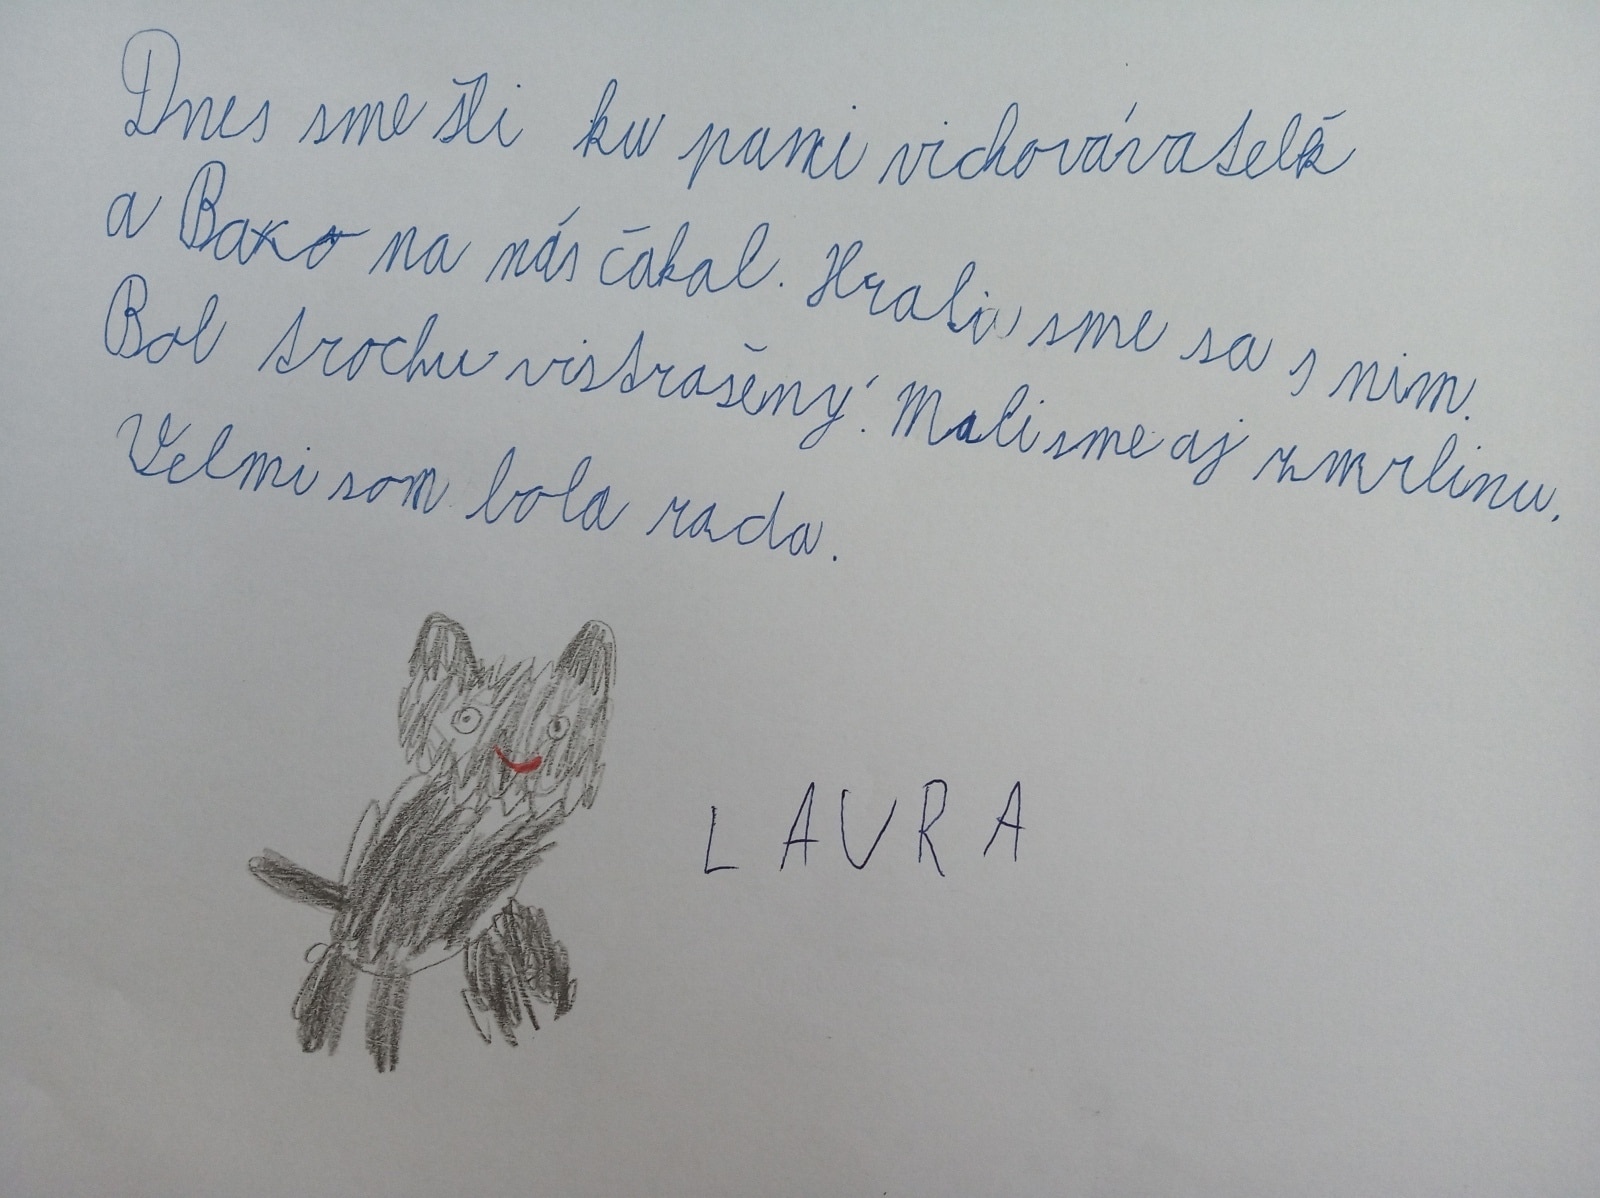 Dnes sme šli ku pani vichovávatelk
a Baxo na nás čakal. Hrali sme sa s nim.
Bol trochu vistrašený. Mali sme aj zmrlinu.
Velmi som bola rada.
LAURA